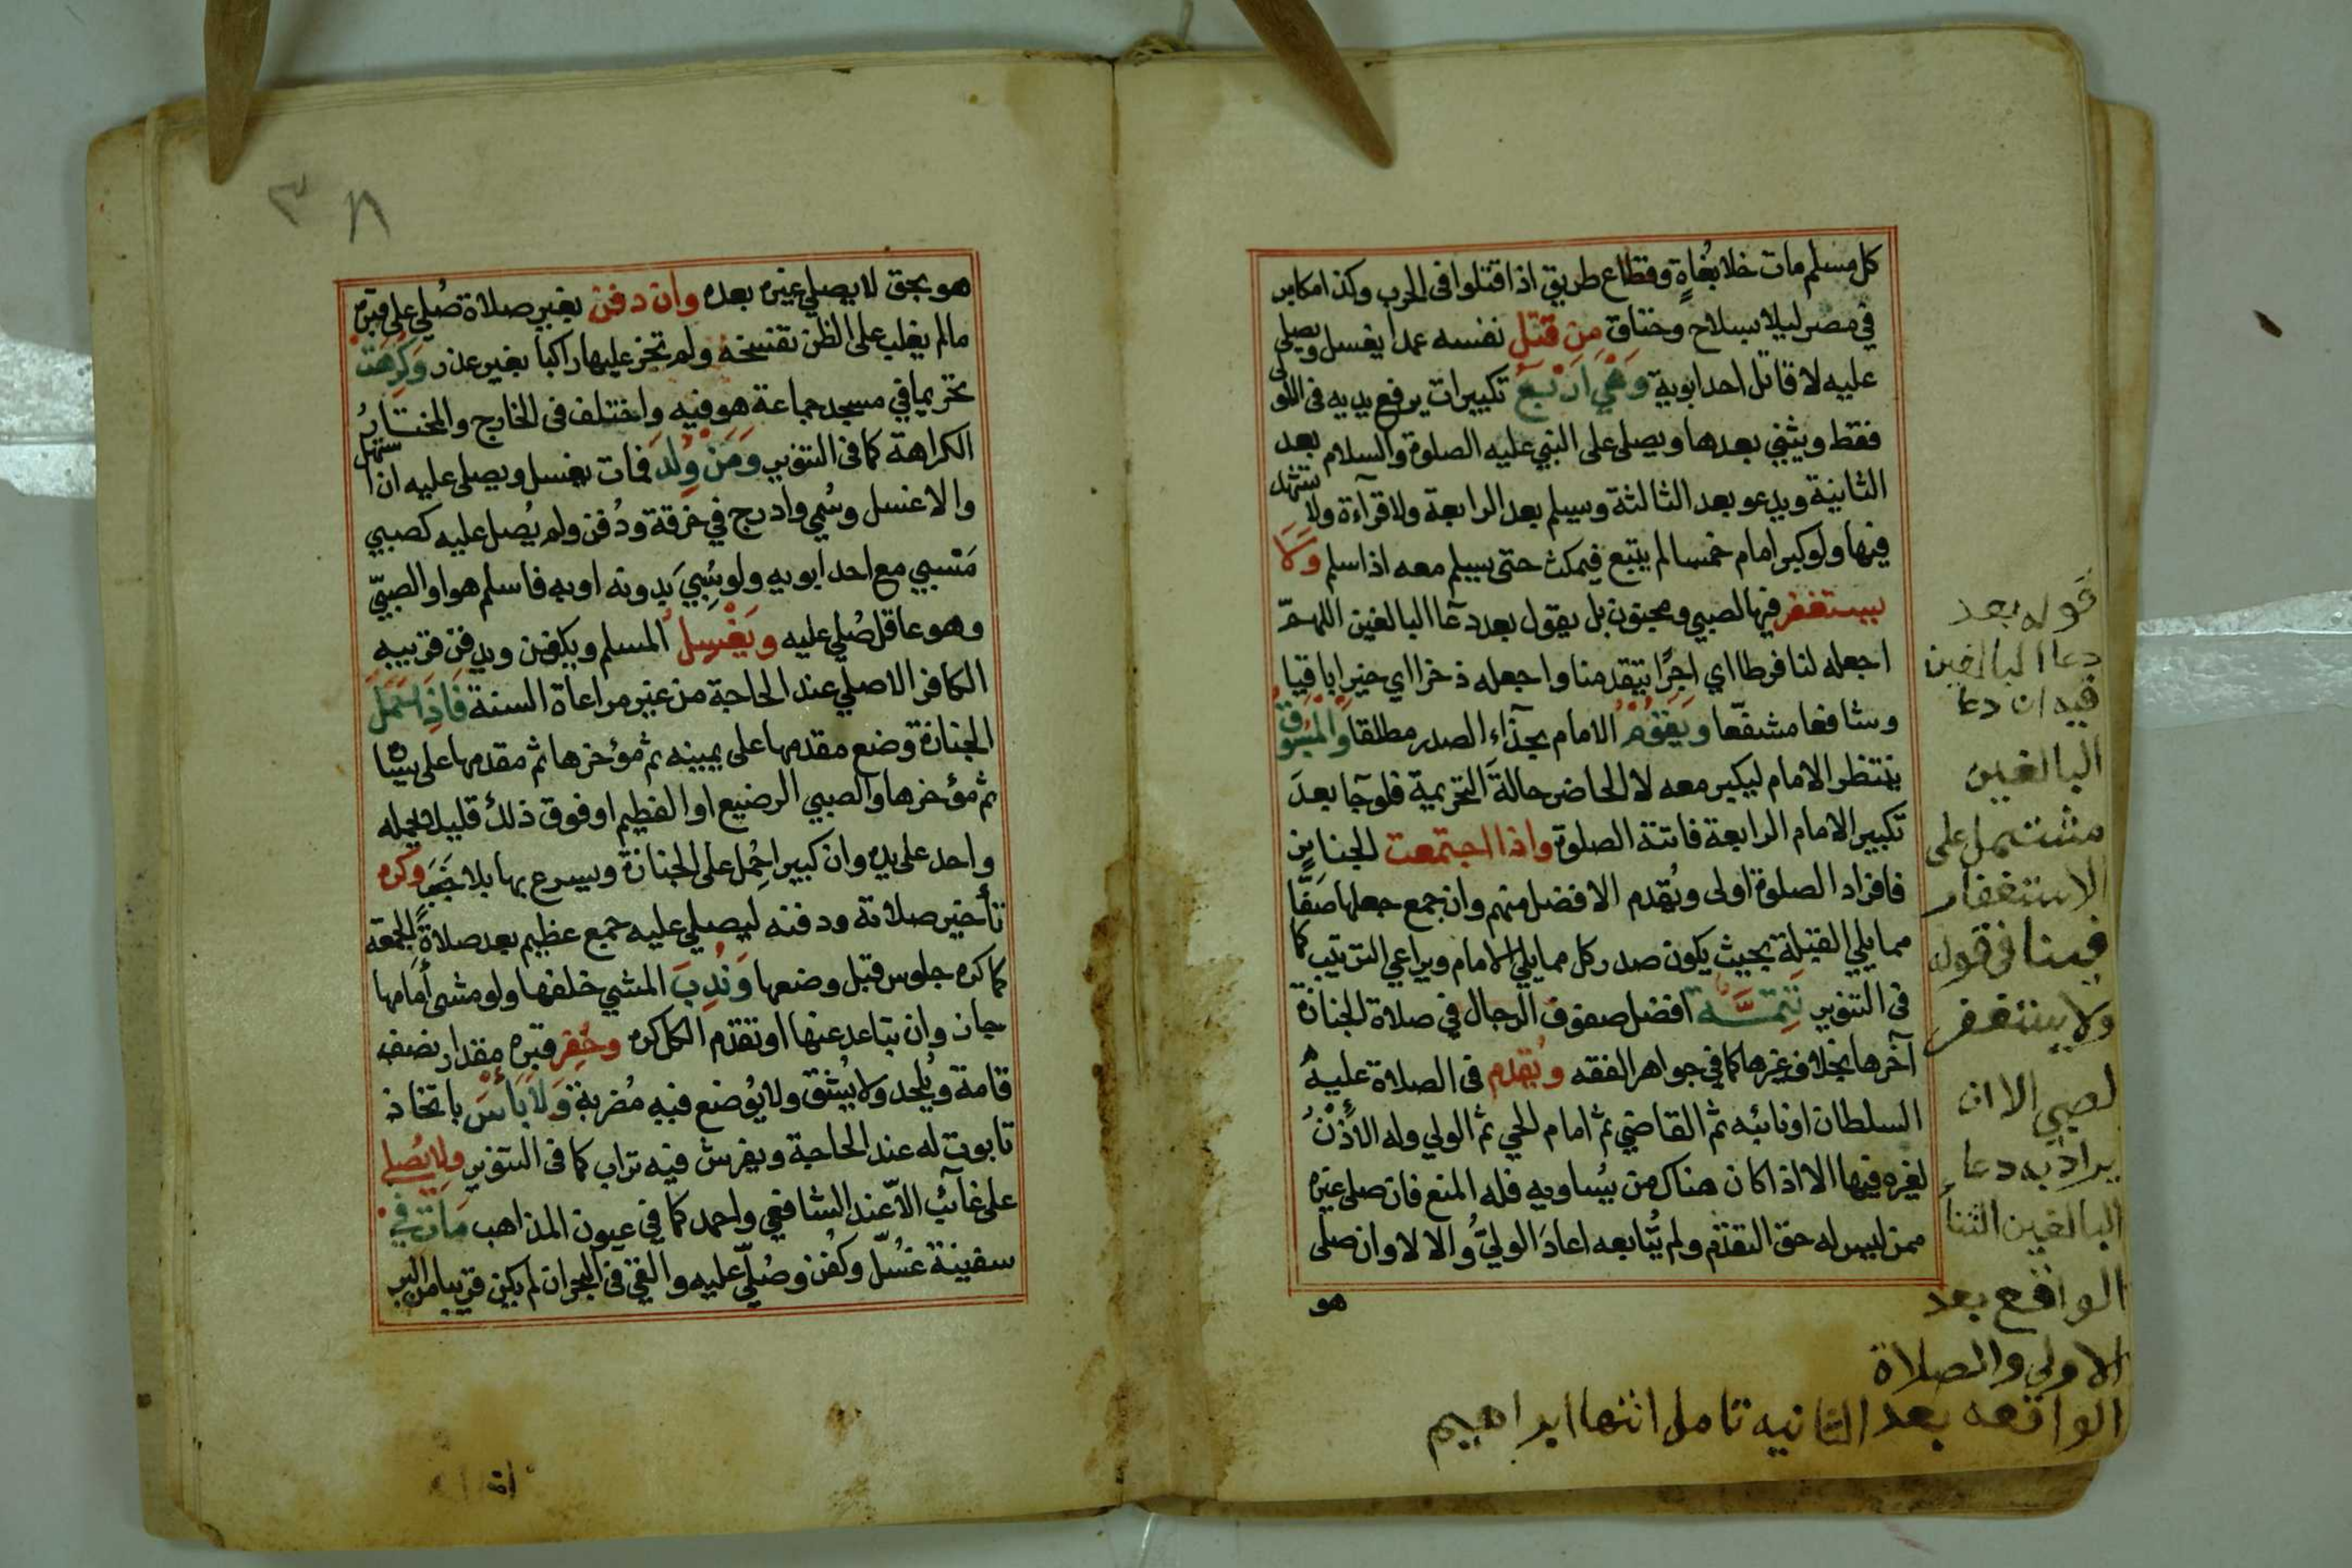 كل مسلم مات خلا بغاةٍ وقطاع طريق اذا قتلوا فى الحرب وكذا مكابر
في مصر ليلا بسلاح وخناق من قتل نفسه عمدا يغسل ويصلى
عليه لا قاتل احد ابويه وَهْيَ اَرْبَعُ تكبيرات يرفع يديه فى الاولى
فقط ويثني بعدها ويصلى على النبي عليه الصلوة والسلام بعد
الثانية ويدعو بعد الثالثة وسيلم بعد الرابعة ولا قرآءة ولا تشهد
فيها ولو كبر امام خمسا لم يتبع فيمكث حتى يسلم معه اذا سلم وَلَا
يستغفر فيها لصبي ومجنون بل يقول بعد دعآ البالغين اللهمّ
اجعله لنا فرطا اي اجرًا يتقدمنا واجعله ذخرا اي خيرا باقيا
وشافعا مشفّعا وَيَقوُمُ الامام بحذآء الصدر مطلقا وَالْمَسْبُوقُ
ينتظر الامام ليكبر معه لا الحاضر حالةَ التحريمة فلو جآ بعدَ
تكبير الامام الرابعة فاتته الصلوة واذا اجتمعت الجنايز
فافراد الصلوة اولى ويُقدم الافضل منهم وان جمع جعلها صَفًّا
مما يلي القبلة بحيث يكون صدر كل مما يلي الامام ويراعي الترتيب كما
فى التنوير تَتِمَّــة افضل صفوف الرجال في صلاة الجنازة
آخرها بخلاف غيرها كما في جواهر الفقه ويُقدم فى الصلاة عليه
السلطان او نائبه ثم القاضي ثم امام الحي ثم الولي وله الأذْنُ
لغيره فيها الا اذا كان هناك من يُساويه فله المنع فان صلى غيره
ممن ليس له حق التقدّم ولم يُتابعه اعادَ الوليُّ والا لا وان صلى
هو
قوله بعد
دعا البالغين
فيه ان دعا
البالغين
مشتمل على
الاستغفار
فينافى قوله
ولا يستغفر
لصبي الا ان
يراد به دعاء
البالغين الثنا
الواقع بعد
الاولى والصلاة
الواقعه بعد الثانيه تامل انتها ابراهيم
٣٨
هو بحق لا يصلي غيره بعده وان دفن بغير صلاة صُلي على قبره
مالم يغلب على الظن تفسخه ولم تجز عليها راكبا بغير عذر وَكُرِهَت
تحريما في مسجد جماعة هو فيه واختلف فى الخارج والمختــارُ
الكراهة كما فى التنوير وَمَنْ وُلدَ فمات يغسل ويصلى عليه ان استهل
والا غسل وسُمي وادرج في خرقة ودُفن ولم يُصل عليه كصبي
مَسبي مع احد ابويه ولو سُبيَ بدونه او به فاسلم هو او الصبيّ
وهو عاقل صُلي عليه ويَغْسِلُ المسلم ويكفن ويدفن قريبه
الكافر الاصلي عند الحاجة من غير مراعاة السنة فَاذَا حَمَلَ
الجنازة وضع مقدمها على يمينه ثم مؤخرها ثم مقدمها على يساره
ثم مؤخرها والصبي الرضيع او الفطيم او فوق ذلك قليلا يحمله
واحد على يده وان كبيرا حُمل على الجنازة ويسرع بها بلا خَبَب وكره
تأخير صلاته ودفنه ليصلي عليه جمع عظيم بعد صلاةِ الجمعة
كما كره جلوس قبل وضعها وَنُدِبَ المشي خلفها ولو مشى أمامها
جاز وان تباعد عنها او تقدم الكل كره وحُفِر قبره مقدار نصف
قامة ويُلحد ولا يُشق ولا يُوضع فيه مُضربة وَلَا بَأسَ باتخاذ
تابوت له عند الحاجة ويفرش فيه تراب كما فى التنوير ولا يُصلى
على غآئب الاّ عند الشافعي واحمد كما في عيون المذاهب مَاتَ في
سفينة غسّل وكفن وصُلّي عليه والقي فى البحر ان لم يكن قريبا من البر